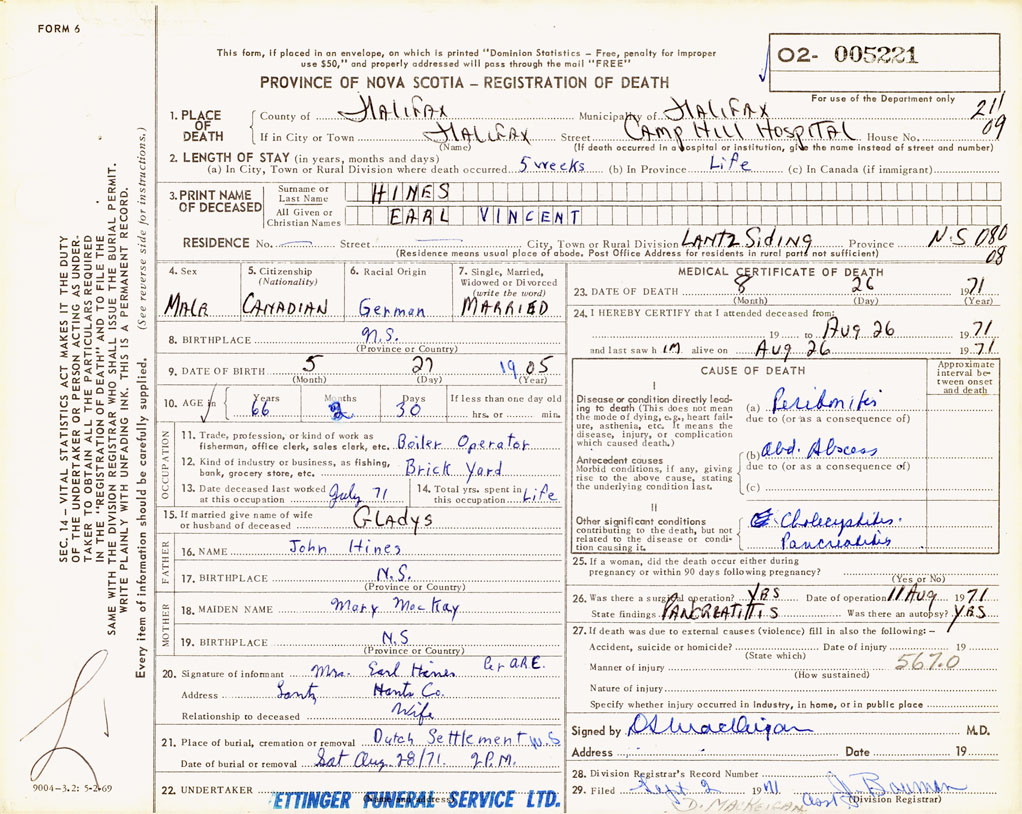 FORM 6
This form, if placed in an envelope, on which is printed "Dominion Statistics – Free, penalty for improper
use $50," and properly addressed will pass through the mail "FREE"
PROVINCE OF NOVA SCOTIA – REGISTRATION OF DEATH
02- 005221
For use of the Department only
211
09
1. PLACE OF DEATH
County of HALIFAX Municipality of HALIFAX
If in City or Town HALIFAX Street CAMP HILL HOSPITAL House No.
(Name) (If death occurred in a hospital or institution, give the name instead of street and number)
2. LENGTH OF STAY (in years, months and days)
(a) In City, Town or Rural Division where death occurred 5 weeks (b) In Province Life (c) In Canada (if immigrant)
3. PRINT NAME OF DECEASED
Surname or Last Name HINES
All Given or Christian Names EARL VINCENT
RESIDENCE No. Street City, Town or Rural Division LANTZ SIDING Province N.S 080
08
(Residence means usual place of abode. Post Office Address for residents in rural parts not sufficient)
4. Sex MALE
5. Citizenship (Nationality) CANADIAN
6. Racial Origin German
7. Single, Married, Widowed or Divorced (write the word) MARRIED
8. BIRTHPLACE N.S.
(Province or Country)
9. DATE OF BIRTH 5 27 1905
(Month) (Day) (Year)
10. AGE in Years 66 Months 2 Days 30 If less than one day old hrs. or min.
OCCUPATION
11. Trade, profession, or kind of work as fisherman, office clerk, sales clerk, etc. Boiler Operator
12. Kind of industry or business, as fishing, bank, grocery store, etc. Brick Yard
13. Date deceased last worked at this occupation July 71
14. Total yrs. spent in this occupation Life
15. If married give name of wife or husband of deceased GLADYS
FATHER
16. NAME John Hines
17. BIRTHPLACE N.S.
(Province or Country)
MOTHER
18. MAIDEN NAME Mary MacKay
19. BIRTHPLACE N.S
(Province or Country)
20. Signature of informant Mrs. Earl Hines
Address Lantz Hants Co.
Relationship to deceased Wife
21. Place of burial, cremation or removal Dutch Settlement N.S
Date of burial or removal Sat Aug 28/71 2 P.M.
22. UNDERTAKER ETTINGER FUNERAL SERVICE LTD.
(Name and address)
MEDICAL CERTIFICATE OF DEATH
23. DATE OF DEATH 8 26 1971
(Month) (Day) (Year)
24. I HEREBY CERTIFY that I attended deceased from:
19 to Aug 26 1971
and last saw h im alive on Aug 26 1971
CAUSE OF DEATH
Approximate interval between onset and death
I
Disease or condition directly leading to death (This does not mean the mode of dying, e.g., heart failure, asthenia, etc. It means the disease, injury, or complication which caused death.)
(a) Peritonitis
due to (or as a consequence of)
Antecedent causes
Morbid conditions, if any, giving rise to the above cause, stating the underlying condition last.
(b) Abd. Abscess
due to (or as a consequence of)
(c)
II
Other significant conditions
contributing to the death, but not related to the disease or condition causing it.
Cholecystitis.
Pancreatitis
25. If a woman, did the death occur either during pregnancy or within 90 days following pregnancy?
(Yes or No)
26. Was there a surgical operation? YES Date of operation 11 Aug 1971
State findings PANCREATITIS Was there an autopsy? YES
27. If death was due to external causes (violence) fill in also the following: –
Accident, suicide or homicide? Date of injury 19
(State which)
Manner of injury 567.0
(How sustained)
Nature of injury
Specify whether injury occurred in Industry, in home, or in public place
Signed by DS MacKeigan M.D.
Address Date 19
28. Division Registrar's Record Number
29. Filed Sept 2 1971 J. Bauman
(Division Registrar)
D. MACKEIGAN
SEC. 14 – VITAL STATISTICS ACT MAKES IT THE DUTY
OF THE UNDERTAKER OR PERSON ACTING AS UNDER-
TAKER TO OBTAIN ALL THE PARTICULARS REQUIRED
IN THE "REGISTRATION OF DEATH" AND TO FILE THE
SAME WITH THE DIVISION REGISTRAR WHO SHALL ISSUE THE BURIAL PERMIT.
WRITE PLAINLY WITH UNFADING INK. THIS IS A PERMANENT RECORD.
Every item of information should be carefully supplied. (See reverse side for instructions.)
9004-3.2: 5-2-69